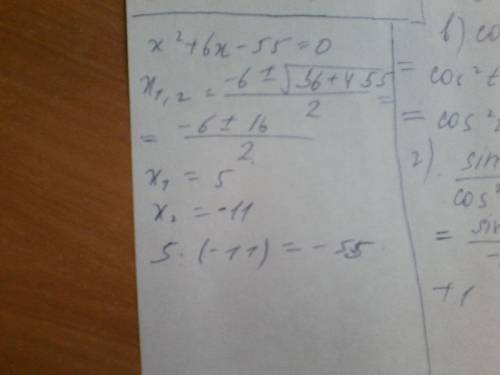 x² + 6x - 55 = 0
x₁,₂ = (-6 ± √(36 + 4·55))/2 =
= (-6 ± 16)/2
x₁ = 5
x₂ = -11
5 · (-11) = -55
b) co
= cos²t
= cos²
2) sin
cos²
= sin
+1